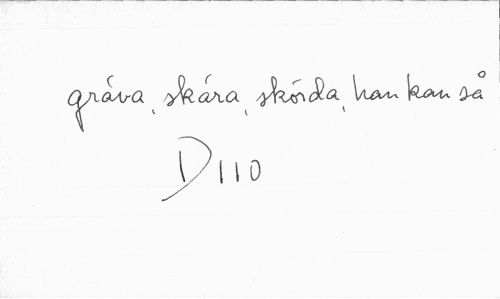 gráva, skára, skórda, han kan så
D 110